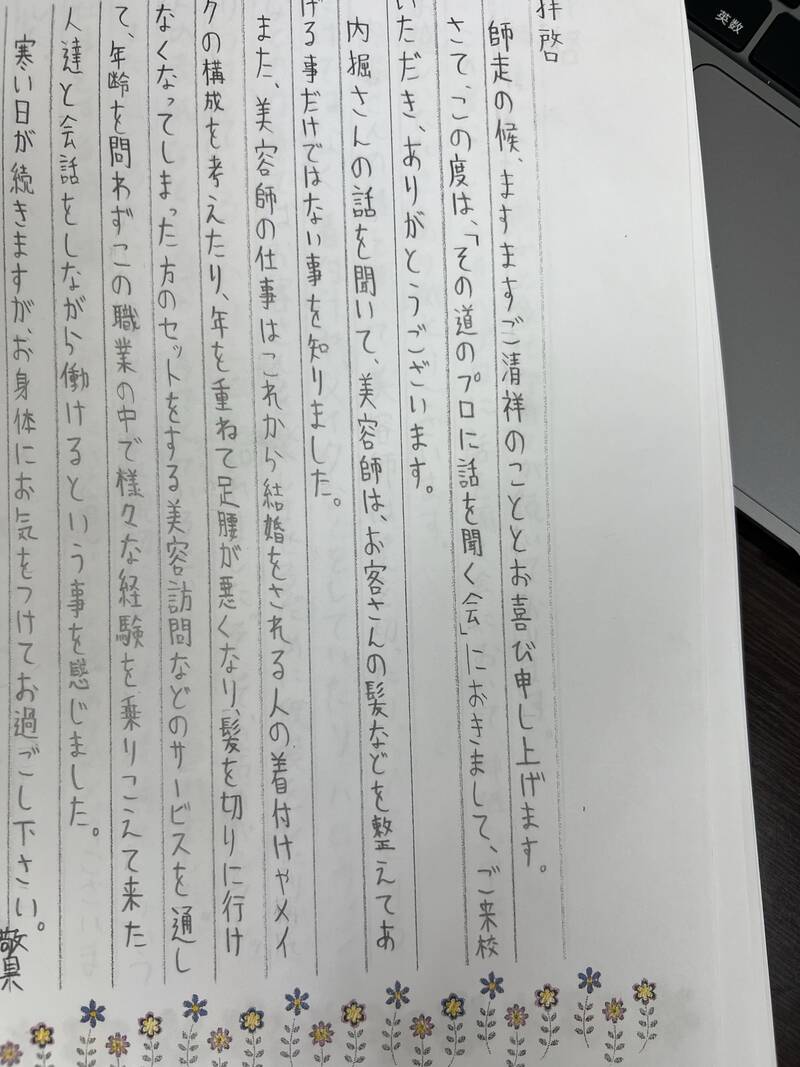 拝啓
師走の候、ますますご清祥のこととお喜び申し上げます。
さて、この度は、「その道のプロに話を聞く会」におきまして、ご来校
いただき、ありがとうございます。
内掘さんの話を聞いて、美容師は、お客さんの髪などを整えてあ
げる事だけではない事を知りました。
また、美容師の仕事はこれから結婚をされる人の着付けやメイ
クの構成を考えたり、年を重ねて足腰が悪くなり、髪を切りに行け
なくなってしまった方のセットをする美容訪問などのサービスを通し
て、年齢を問わずこの職業の中で様々な経験を乗りこえて来た
人達と会話をしながら働けるという事を感じました。
寒い日が続きますが、お身体にお気をつけてお過ごし下さい。
敬具
英数